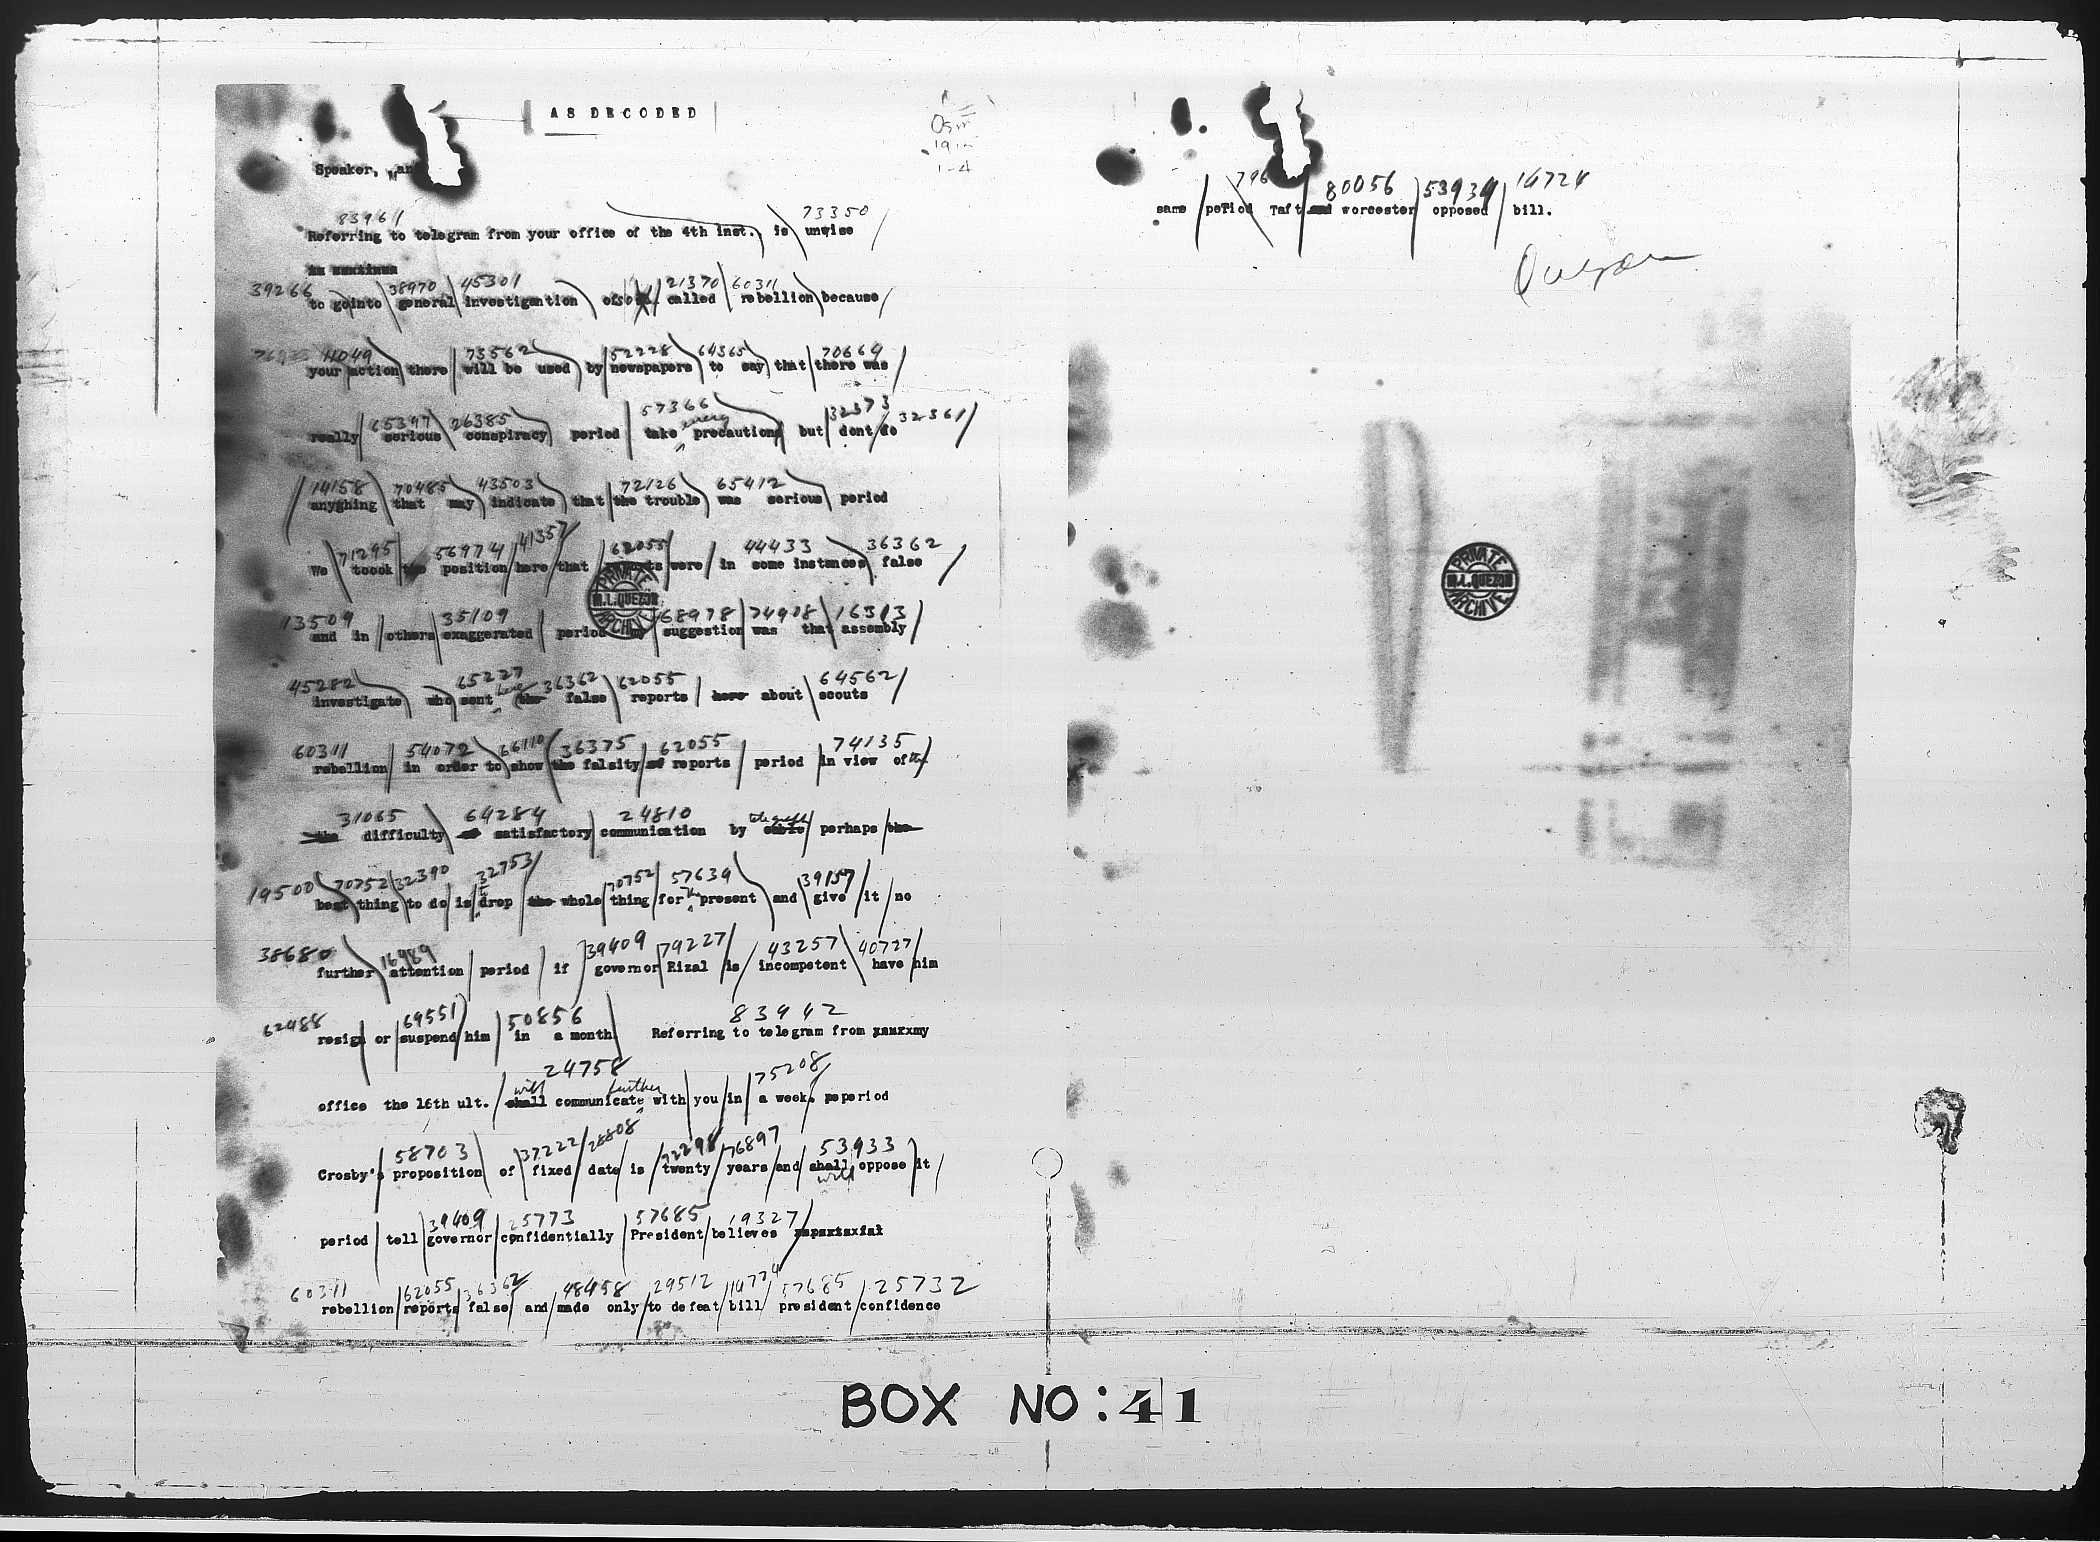 AS DECODED
Speaker,
83961 73350
Referring to telegram from your office of the 4th inst. is unwise
39266 38970 45301 21370 60311
to gointo general investigantion of so called rebellion because
11049 73562 52228 64365 70669
your action there will be used by newspapers to say that there was
65397 26385 57366 32373 32361
really serious conspiracy period take every precautions but dont do
14158 70485 43503 72126 65412
anyghing that may indicate that the trouble was serious period
71295 56974 41357 62055 44433 36362
We toook the position here that reports were in some instances false
13509 35109 68978 74908 16313
and in others exaggerated period my suggestion was that assembly
45282 65227 36362 62055 64562
investigate who sent here the false reports here about scouts
60311 54072 66110 36375 62055 74135
rebellion in order to show the falsity of reports period in view of the
31065 64284 24810
the difficulty of satisfactory communication by cable telegraph perhaps the
19500 70752 32390 32753 70752 57639 39157
best thing to do is to drop the whole thing for the present and give it no
38680 16989 39409 79227 43257 40727
further attention period if governor Rizal is incompetent have him
62488 69551 50856 83942
resign or suspend him in a month Referring to telegram from my
24758 75208
office the 16th ult. shall will communicate further with you in a week. peperiod
58703 37222 28808 72298 76897 53933
Crosby's proposition of fixed date is twenty years and shall will oppose it
39409 25773 57685 19327
period tell governor confidentially President believes
60311 62055 36362 48458 29512 19724 57685 25732
rebellion reports false and made only to defeat bill president confidence
80056 53934 19724
same period Taft and worcester opposed bill.
Quezon
PRIVATE
M.L.QUEZON
ARCHIVE
PRIVATE
M.L.QUEZON
ARCHIVE
BOX NO:41